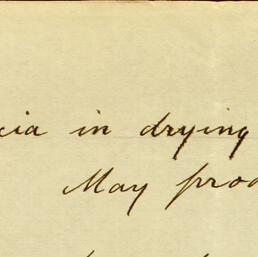 cia in drying
May prod